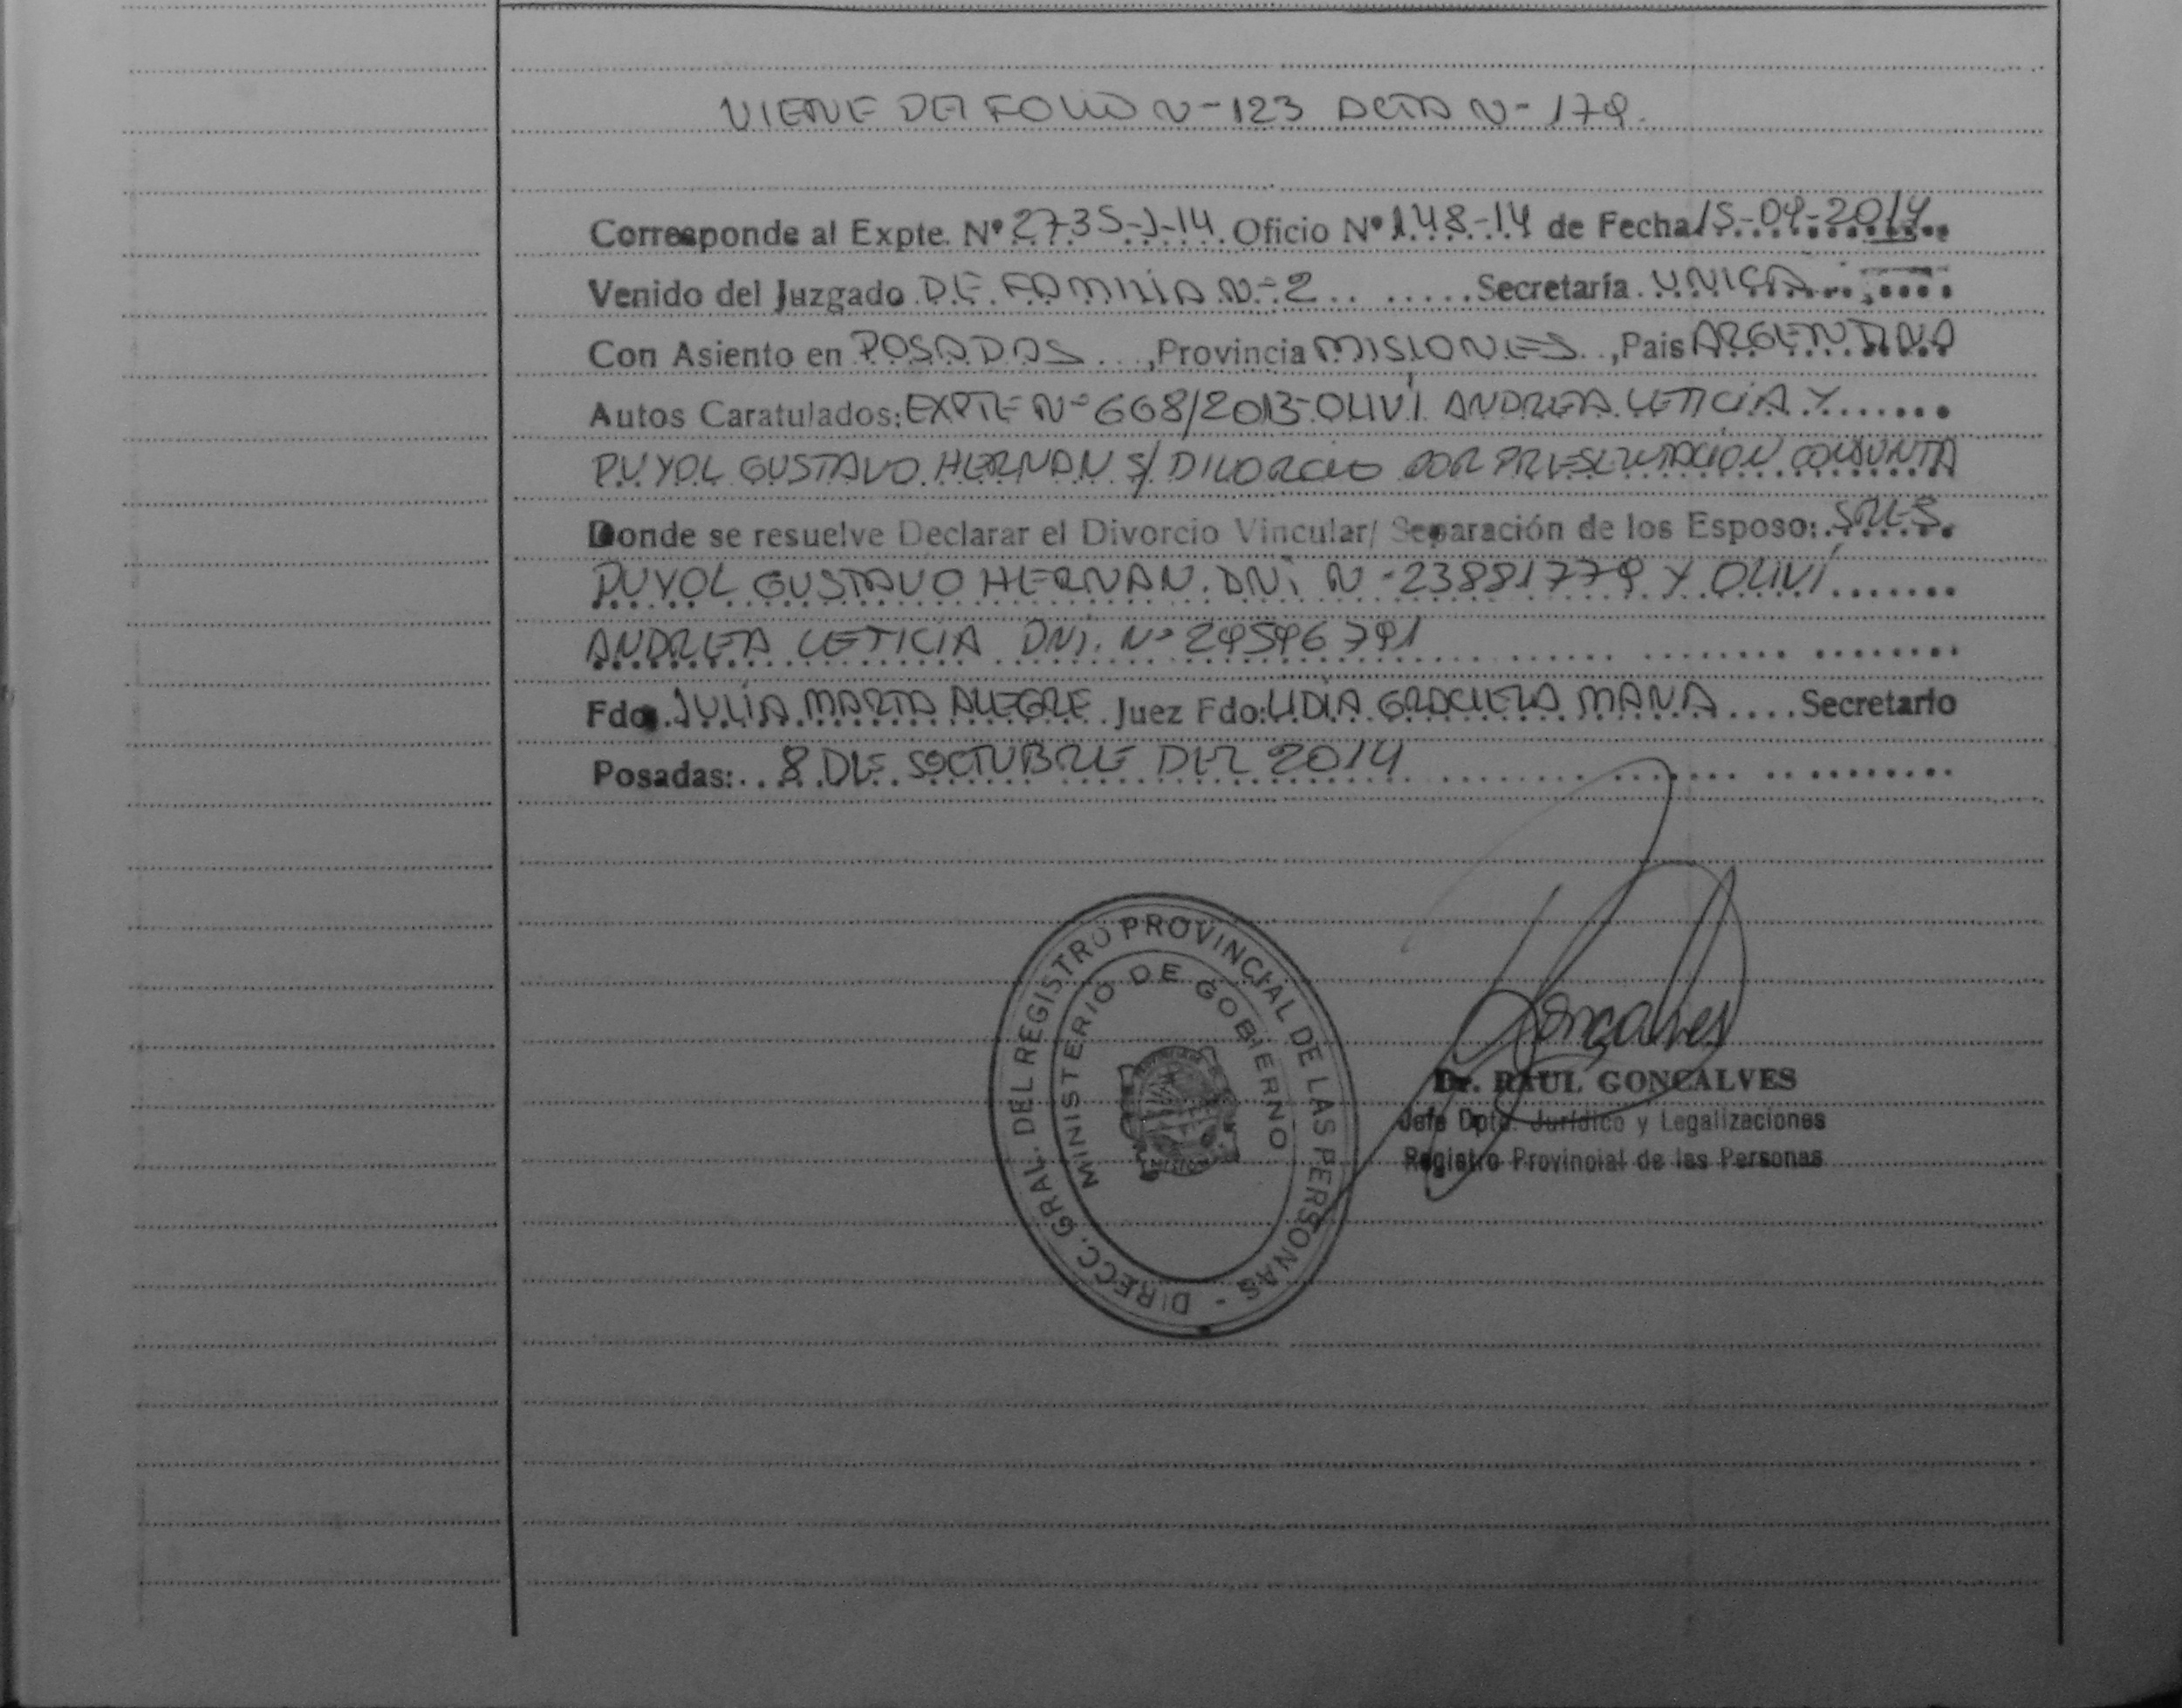 VIENE DEL FOLIO N- 123 ACTA N- 179.
Corresponde al Expte. Nº 2735-J-14 Oficio Nº 148-14 de Fecha 15-04-2014
Venido del Juzgado DE FAMILIA N-2 Secretaría UNICA
Con Asiento en POSADAS, Provincia MISIONES, Pais ARGENTINA
Autos Caratulados: EXPTE Nº 668/2013-OLIVÍ ANDREA LETICIA Y
PUYOL GUSTAVO HERNAN S/ DIVORCIO POR PRESENTACIÓN CONJUNTA
Donde se resuelve Declarar el Divorcio Vincular/ Separación de los Esposo: SRES.
PUYOL GUSTAVO HERNAN. DNI N-23881779 Y OLIVÍ
ANDREA LETICIA DNI. Nº 29596791
Fdo. JULIA MARTA ALEGRE Juez Fdo: LIDIA GRACIELA MANA Secretario
Posadas: 8 DE OCTUBRE DEL 2014
DIRECC. GRAL. DEL REGISTRO PROVINCIAL DE LAS PERSONAS -
MINISTERIO DE GOBIERNO
Goncalves
Dr. RAUL GONCALVES
Jefe Dpto. Jurídico y Legalizaciones
Registro Provincial de las Personas